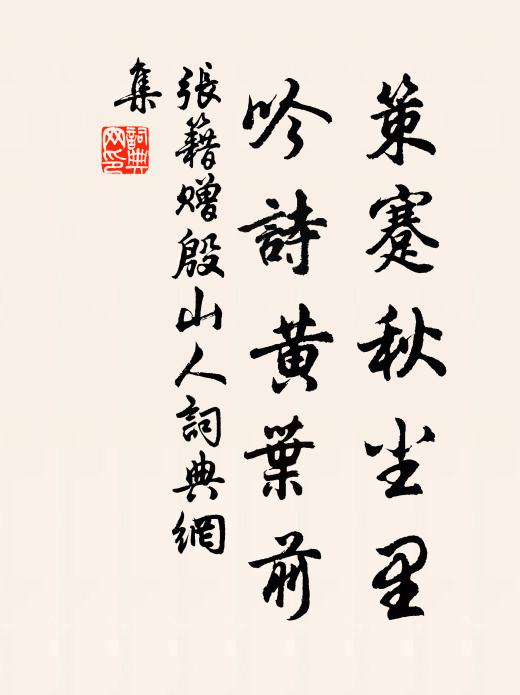 策蹇秋尘里
吟詩黄葉前
張籍贈殷山人詞典網
集
詞典网印